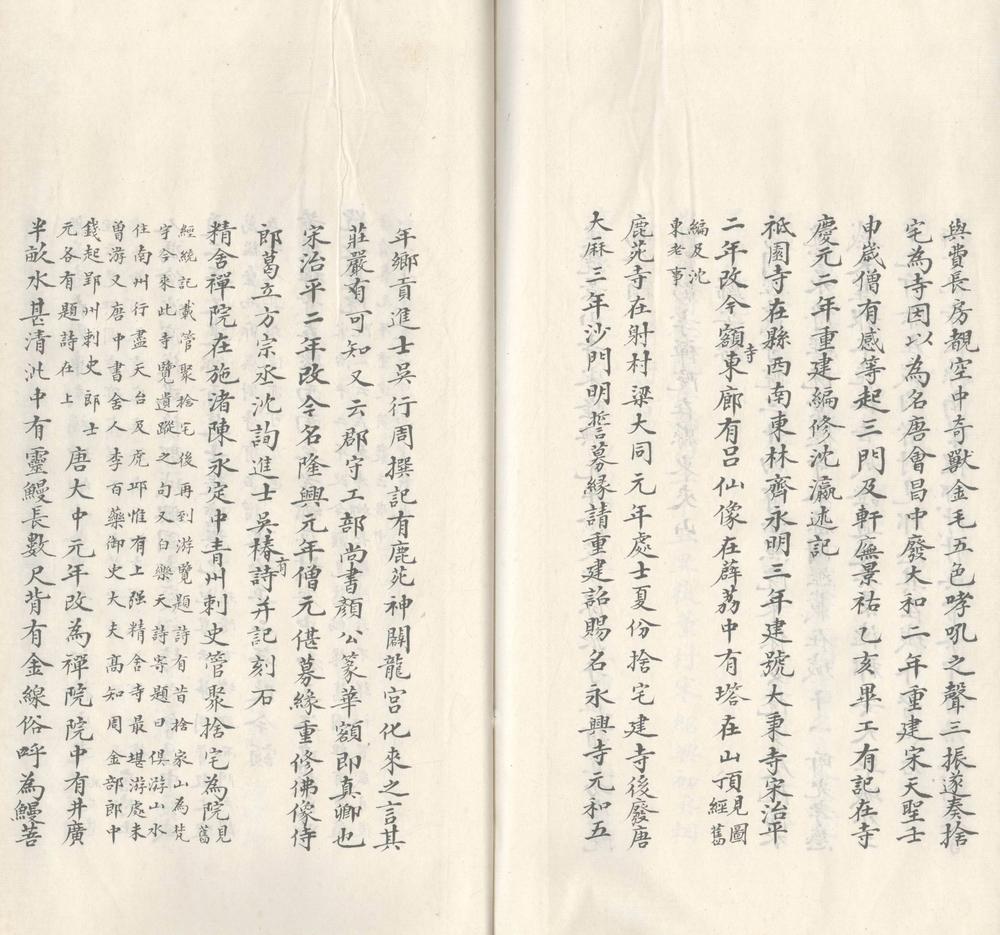 與費長房覩空中奇獸金毛五色哮吼之聲三振遂奏捨
宅為寺因以為名唐會昌中廢大和二年重建宋天聖壬
申歲僧有感等起三門及軒廡景祐乙亥畢工有記在寺
慶元二年重建編修沈瀛述記
祗園寺在縣西南東林齊永明三年建號大秉寺宋治平
二年改今額寺東廊有呂仙像在薜荔中有塔在山頂見圖
經舊
編及沈
東老事
鹿苑寺在射村梁大同元年處士夏份捨宅建寺後廢唐
大厤三年沙門明誓募緣請重建詔賜名永興寺元和五
年鄉貢進士吳行周撰記有鹿苑神闢龍宮化來之言其
莊嚴有可知又云郡守工部尚書顏公篆華額即真卿也
宋治平二年改今名隆興元年僧元偡募緣重修佛像侍
郎葛立方宗丞沈詢進士吳椿詩有并記刻石
精舍禪院在施渚陳永定中青州刺史管聚捨宅為院見
舊
經統記載管聚捨宅後再到游覽題詩有昔捨家山為梵
宇今來此寺覽遺蹤之句又白樂天詩寄題曰俱游山水
住南州行盡天台及虎邱惟有上强精舍寺最堪游處未
曾游又唐中書舍人李百藥御史大夫高知周金部郎中
錢起郢州刺史郎士
元各有題詩在上
唐大中元年改為禪院院中有井廣
半畝水甚清泚中有靈鰻長數尺背有金線俗呼為鰻菩